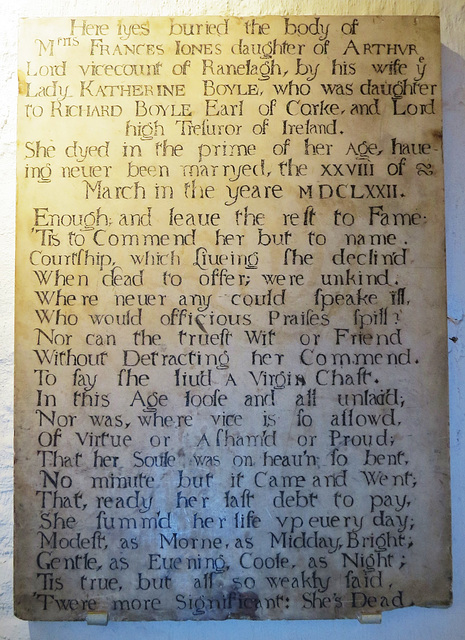 Here lyes buried the body of
Mrıs FRANCES IONES daughter of ARTHVR
Lord vicecount of Ranelagh, by his wife ẙ
Lady KATHERINE BOYLE, who was daughter
to RICHARD BOYLE Earl of Corke, and Lord
high Treſuror of Ireland.
She dyed in the prime of her Age, haue-
ing neuer been marryed, the XXVIII of
March in the yeare MDCLXXII.
Enough; and leaue the reſt to Fame:
'Tis to Commend her but to name.
Courtſhip, which liueing ſhe declin'd
When dead to offer; were unkind.
Where neuer any could ſpeake ill,
Who would officious Praiſes ſpill?
Nor can the trueſt Wit or Friend
Without Detracting her Commend.
To ſay ſhe liu'd A Virgin Chaſt.
In this Age looſe and all unlaic'd;
Nor was, where vice is ſo allow'd,
Of Virtue or Aſham'd or Proud;
That her Soule was on heau'n ſo bent,
No minute but it Came and Went;
That, ready her laſt debt to pay,
She ſumm'd her life vp euery day;
Modeſt, as Morne, as Midday, Bright;
Gentle, as Euening, Coole, as Night;
Tis true, but all so weakly ſaid,
'Twere more Significant: She's Dead.